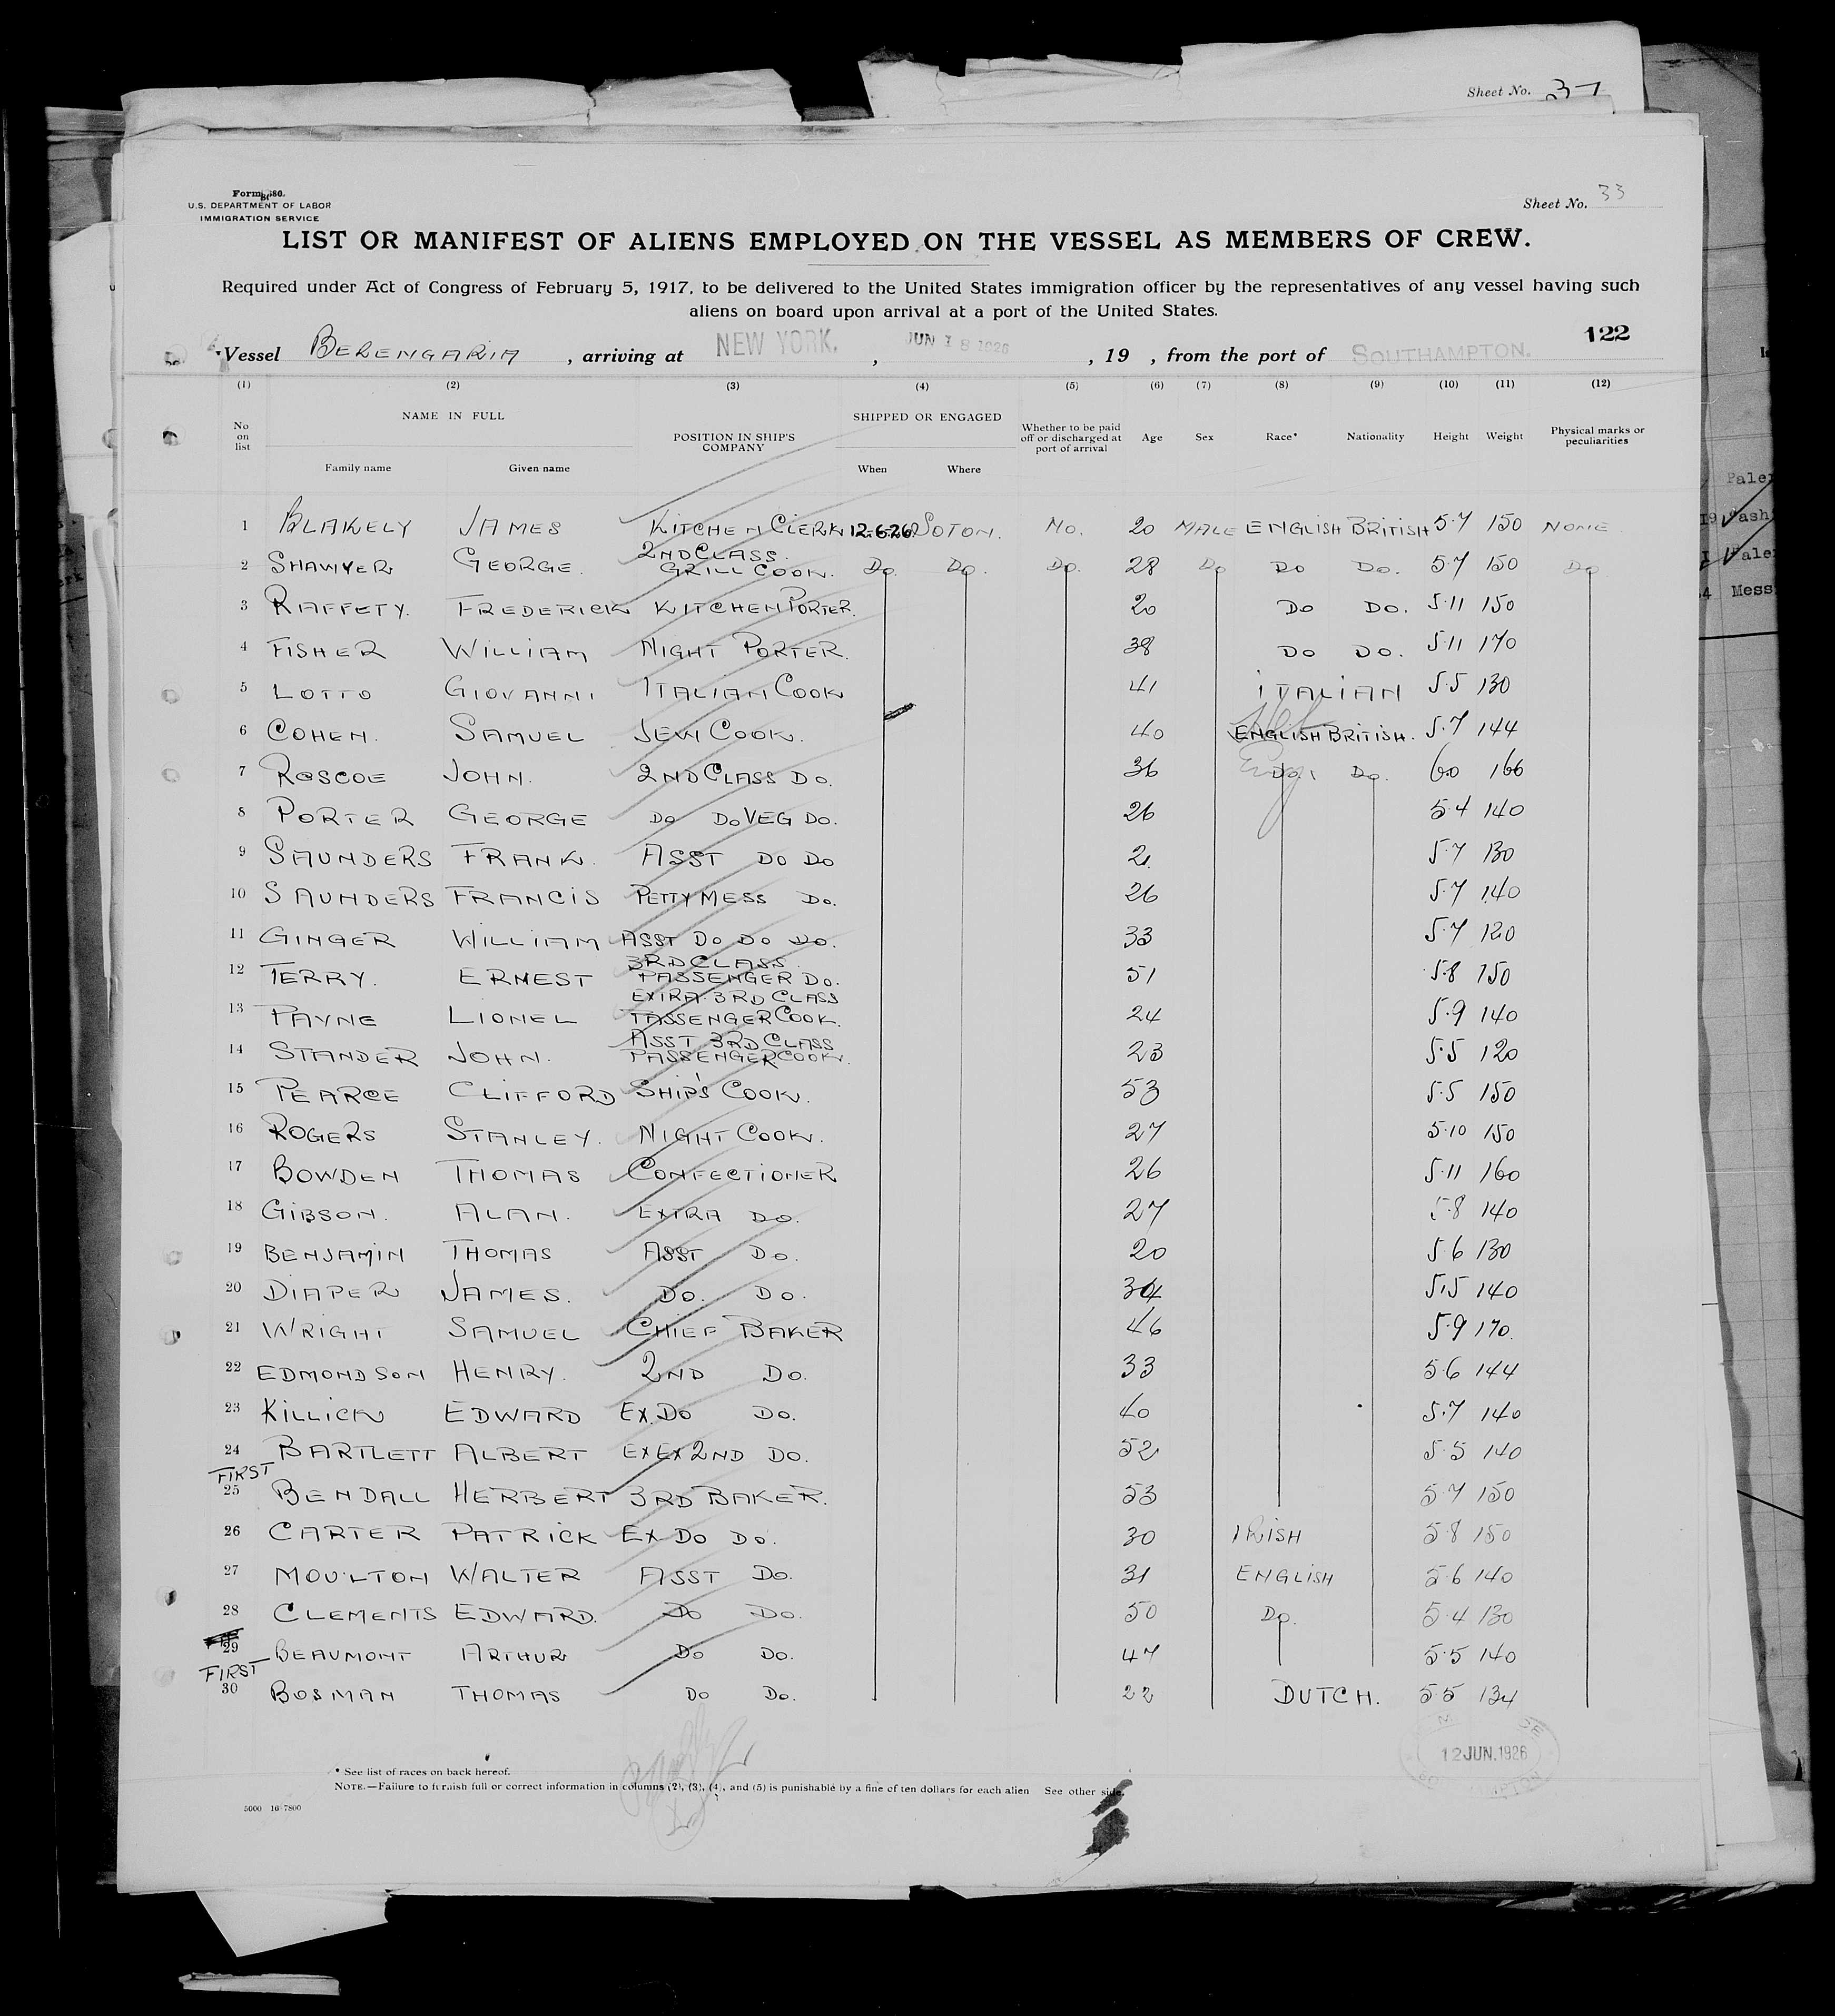 Sheet No. 37
Form 680.
U.S. DEPARTMENT OF LABOR
IMMIGRATION SERVICE
Sheet No. 33
LIST OR MANIFEST OF ALIENS EMPLOYED ON THE VESSEL AS MEMBERS OF CREW.
Required under Act of Congress of February 5, 1917, to be delivered to the United States immigration officer by the representatives of any vessel having such
aliens on board upon arrival at a port of the United States.
122
Vessel BERENGARIA , arriving at NEW YORK. , JUN 18 1926 , 19 , from the port of SOUTHAMPTON.
(1) (2) (3) (4) (5) (6) (7) (8) (9) (10) (11) (12)
No on list NAME IN FULL Family name Given name POSITION IN SHIP'S COMPANY SHIPPED OR ENGAGED When Where Whether to be paid off or discharged at port of arrival Age Sex Race* Nationality Height Weight Physical marks or peculiarities
1 BLAKELY JAMES KITCHEN CLERK 12.6.26 SOTON. NO. 20 MALE ENGLISH BRITISH 5.7 150 NONE
2 SHAWYER GEORGE. 2ND CLASS. GRILL COOK. DO. DO. DO. 28 DO DO DO. 5.7 150 DO
3 RAFFETY. FREDERICK KITCHEN PORTER. 20 DO DO. 5.11 150
4 FISHER WILLIAM NIGHT PORTER. 38 DO DO. 5.11 170
5 LOTTO GIOVANNI ITALIAN COOK 41 ITALIAN 5.5 130
6 COHEN. SAMUEL JEW COOK. 40 ENGLISH BRITISH. 5.7 144
7 ROSCOE JOHN. 2ND CLASS DO. 36 Eng DO. DO. 6.0 166
8 PORTER GEORGE DO DO VEG DO. 26 5.4 140
9 SAUNDERS FRANK. ASST DO DO 21 5.7 130
10 SAUNDERS FRANCIS PETTY MESS DO. 26 5.7 140
11 GINGER WILLIAM ASST DO DO DO. 33 5.7 120
12 TERRY. ERNEST 3RD CLASS. PASSENGER DO. 51 5.8 150
13 PAYNE LIONEL EXTRA 3RD CLASS PASSENGER COOK. 24 5.9 140
14 STANDER JOHN. ASST 3RD CLASS PASSENGER COOK. 23 5.5 120
15 PEARCE CLIFFORD SHIP'S COOK. 53 5.5 150
16 ROGERS STANLEY. NIGHT COOK. 27 5.10 150
17 BOWDEN THOMAS CONFECTIONER 26 5.11 160
18 GIBSON. ALAN. EXTRA DO. 27 5.8 140
19 BENJAMIN THOMAS ASST DO. 20 5.6 130
20 DIAPER JAMES. DO. DO. 34 5.5 140
21 WRIGHT SAMUEL CHIEF BAKER 46 5.9 170.
22 EDMONDSON HENRY. 2ND DO. 33 5.6 144
23 KILLICK EDWARD EX.DO DO. 40 5.7 140
24 BARTLETT ALBERT EX EX 2ND DO. 52 5.5 140
FIRST
25 BENDALL HERBERT 3RD BAKER. 53 5.7 150
26 CARTER PATRICK EX DO DO. 30 IRISH 5.8 150
27 MOULTON WALTER ASST DO. 31 ENGLISH 5.6 140
28 CLEMENTS EDWARD. DO DO. 50 DO. 5.4 130
29 BEAUMONT ARTHUR DO DO. 47 5.5 140
FIRST
30 BOSMAN THOMAS DO DO. 22 DUTCH. 5.5 134
12 JUN. 1926
* See list of races on back hereof.
NOTE.—Failure to furnish full or correct information in columns (2), (3), (4), and (5) is punishable by a fine of ten dollars for each alien See other side.
5000 16-7800